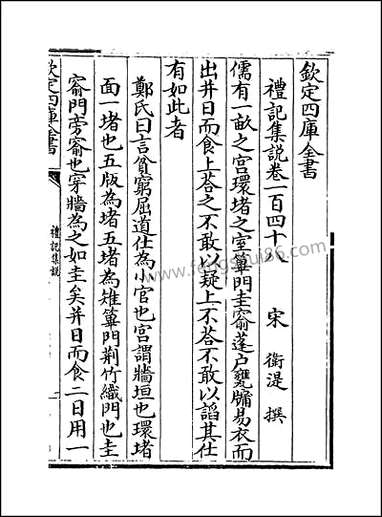 欽定四庫全書
禮記集說卷一百四十八
宋 衛湜 撰
儒有一畝之宫環堵之室篳門圭窬蓬户甕牖易衣而
出并日而食上答之不敢以疑上不答不敢以諂其仕
有如此者
鄭氏曰言貧窮屈道仕為小官也宫謂牆垣也環堵
面一堵也五版為堵五堵為雉篳門荆竹織門也圭
窬門旁窬也穿牆為之如圭矣并日而食二日用一
欽定四庫全書
禮記集說
www.fengshui86.com